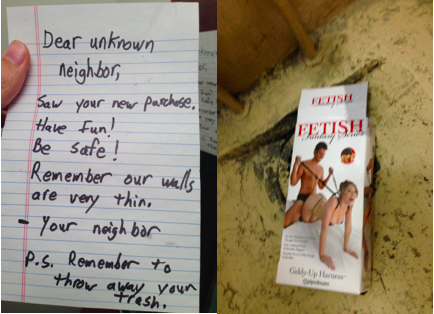 Dear unknown
neighbor,
Saw your new purchase.
Have fun!
Be safe!
Remember our walls
are very thin.
- Your neighbor
P.S. Remember to
throw away your
trash.
FETISH
FETISH
Fantasy Series
Giddy-Up Harness